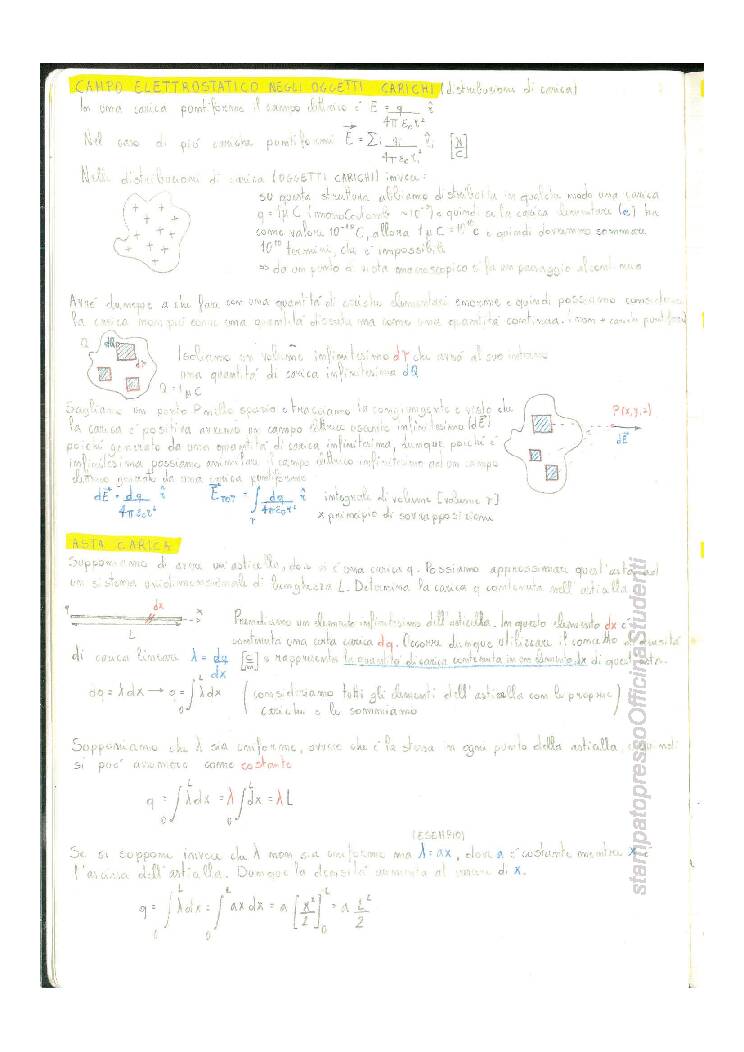 CAMPO ELETTROSTATICO NEGLI OGGETTI CARICHI (distribuzioni di carica)
In una carica puntiforme il campo elettrico è E = q / 4πε₀r² r̂
Nel caso di più cariche puntiformi E⃗ = Σi qi / 4πε₀ri² r̂i [N/C]
Nelle distribuzioni di carica (OGGETTI CARICHI) invece:
su questa struttura abbiamo distribuita in qualche modo una carica
q = 1μC e quindi se la carica elementare (e) ha
come valore C, allora 1μC = e quindi dovremmo sommare
termini, che è impossibile
=> da un punto di vista macroscopico si fa un passaggio al continuo
Avrò dunque a che fare con una quantità di cariche elementari enorme e quindi possiamo considerare
la carica non più come una quantità discreta ma come una quantità continua. (non + cariche puntiformi)
Q dQ dτ
Isoliamo un volume infinitesimo dτ che avrà al suo interno
una quantità di carica infinitesima dQ
Q = 1μC
Scegliamo un punto P nello spazio e tracciamo la congiungente e visto che
la carica è positiva avremo un campo elettrico uscente infinitesimo (dE⃗)
poiché generato da una quantità di carica infinitesima, dunque poiché è
infinitesima possiamo assimilare il campo elettrico infinitesimo ad un campo
elettrico generato da una carica puntiforme
P(x,y,z)
dE⃗
dE⃗ = dq / 4πε₀r² r̂ E⃗TOT = ∫τ dq / 4πε₀r² r̂ integrale di volume [volume τ]
x principio di sovrapposizione
ASTA CARICA
Supponiamo di avere un'asticella, dove vi è una carica q. Possiamo approssimare quest'asta ad
un sistema unidimensionale di lunghezza L. Determina la carica q contenuta nell'asticella
q dx x
L
Prendiamo un elemento infinitesimo dell'asticella. In questo elemento dx è
contenuta una certa carica dq. Occorre dunque utilizzare il concetto di densità
di carica lineare λ = dq/dx [C/m] e rappresenta la quantità di carica contenuta in un elemento dx di quest'asta.
dq = λdx → q = ∫₀ᴸ λdx (consideriamo tutti gli elementi dell'asticella con le proprie
cariche e le sommiamo)
Supponiamo che λ sia uniforme, ovvero che è la stessa in ogni punto della asticella,
si può assumere come costante
q = ∫₀ᴸ λdx = λ ∫₀ᴸ dx = λL
(ESEMPIO)
Se si suppone invece che λ non sia uniforme ma λ = ax, dove a è costante mentre x è
l'ascissa dell'asticella. Dunque la densità aumenta al variare di x.
q = ∫₀ᴸ λdx = ∫₀ᴸ ax dx = a [x²/2]₀ᴸ = a L²/2
stampatopressoOfficinaStudenti